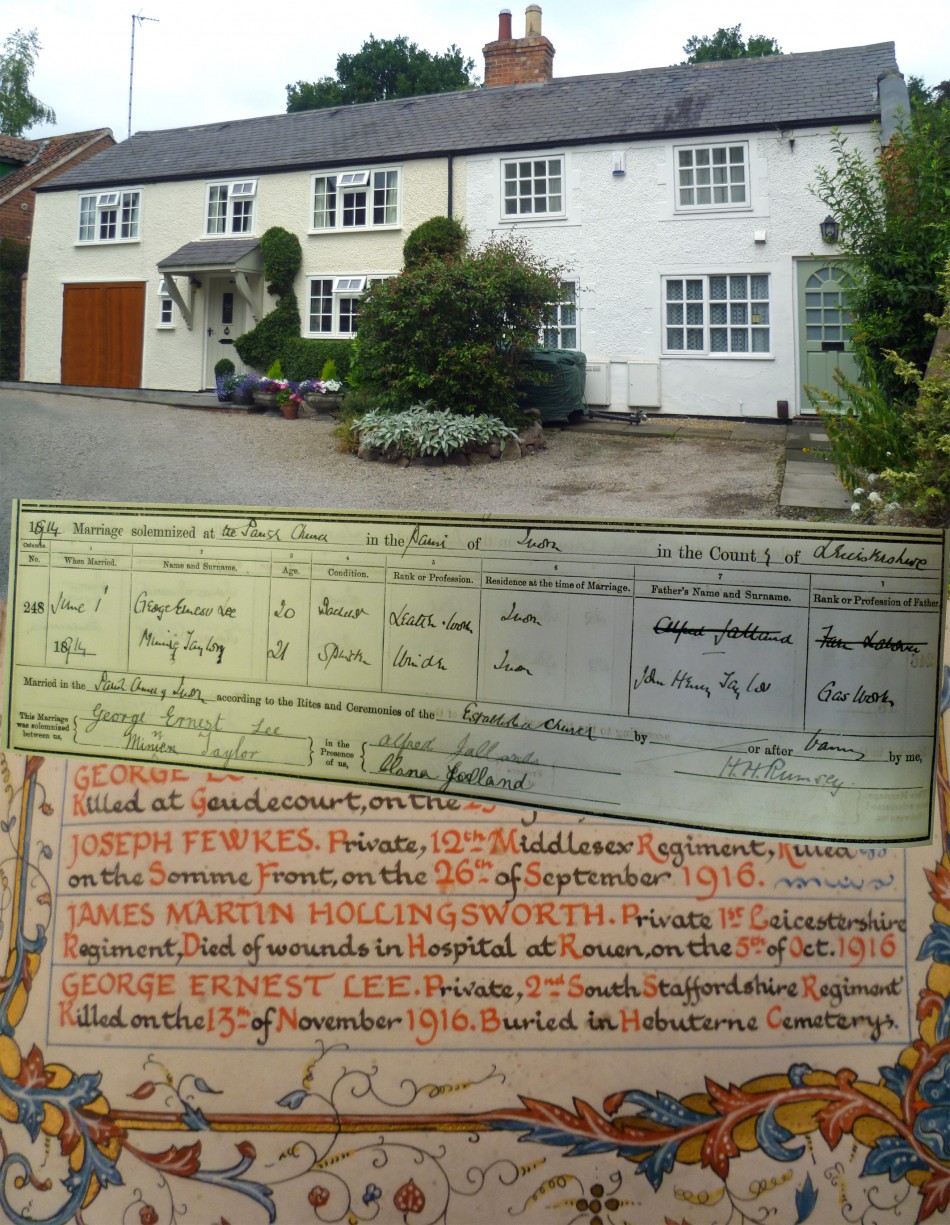 1914 Marriage solemnized at the Parish Church in the Parish of in the County of Leicestershire
Columns 1 2 3 4 5 6 7 8
No. When Married. Name and Surname. Age. Condition. Rank or Profession. Residence at the time of Marriage. Father's Name and Surname. Rank or Profession of Father.
248 June 1 George Ernest Lee 20 Bachelor Leather work Alfred Jalland
1914 Minnie Taylor 21 Spinster John Henry Taylor Gas Work
Married in the Parish Church according to the Rites and Ceremonies of the Established Church by or after Banns by me,
This Marriage was solemnized between us, George Ernest Lee in the Presence of us, Alfred Jalland H. H. Rumsey
Minnie Taylor Jalland
GEORGE
Killed at Geudecourt, on the 25
JOSEPH FEWKES. Private, 12th Middlesex Regiment, Killed
on the Somme Front, on the 26th of September 1916.
JAMES MARTIN HOLLINGSWORTH. Private 1st Leicestershire
Regiment, Died of wounds in Hospital at Rouen, on the 5th of Oct. 1916
GEORGE ERNEST LEE. Private, 2nd South Staffordshire Regiment
Killed on the 13th of November 1916. Buried in Hebuterne Cemetery.